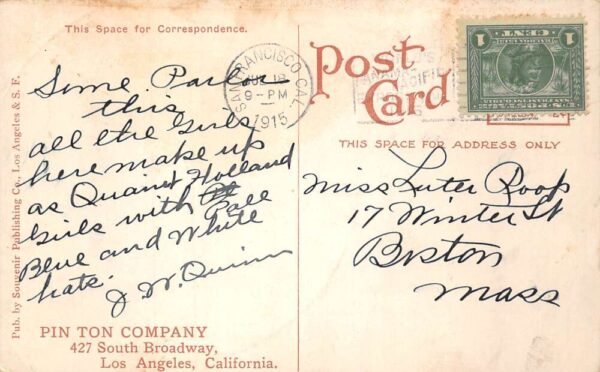 This Space for Correspondence.
Some Parlor
this
all the Girls
here make up
as Quaint Holland
Girls with Pale
Blue and White
hats.
J W. Quinn
PIN TON COMPANY
427 South Broadway,
Los Angeles, California.
Pub. by Souvenir Publishing Co., Los Angeles & S. F.
SAN FRANCISCO, CAL.
9-PM
1915
Post
Card
1 CENT 1
THIS SPACE FOR ADDRESS ONLY
Miss Luter Roop
17 Winter St
Boston
Mass